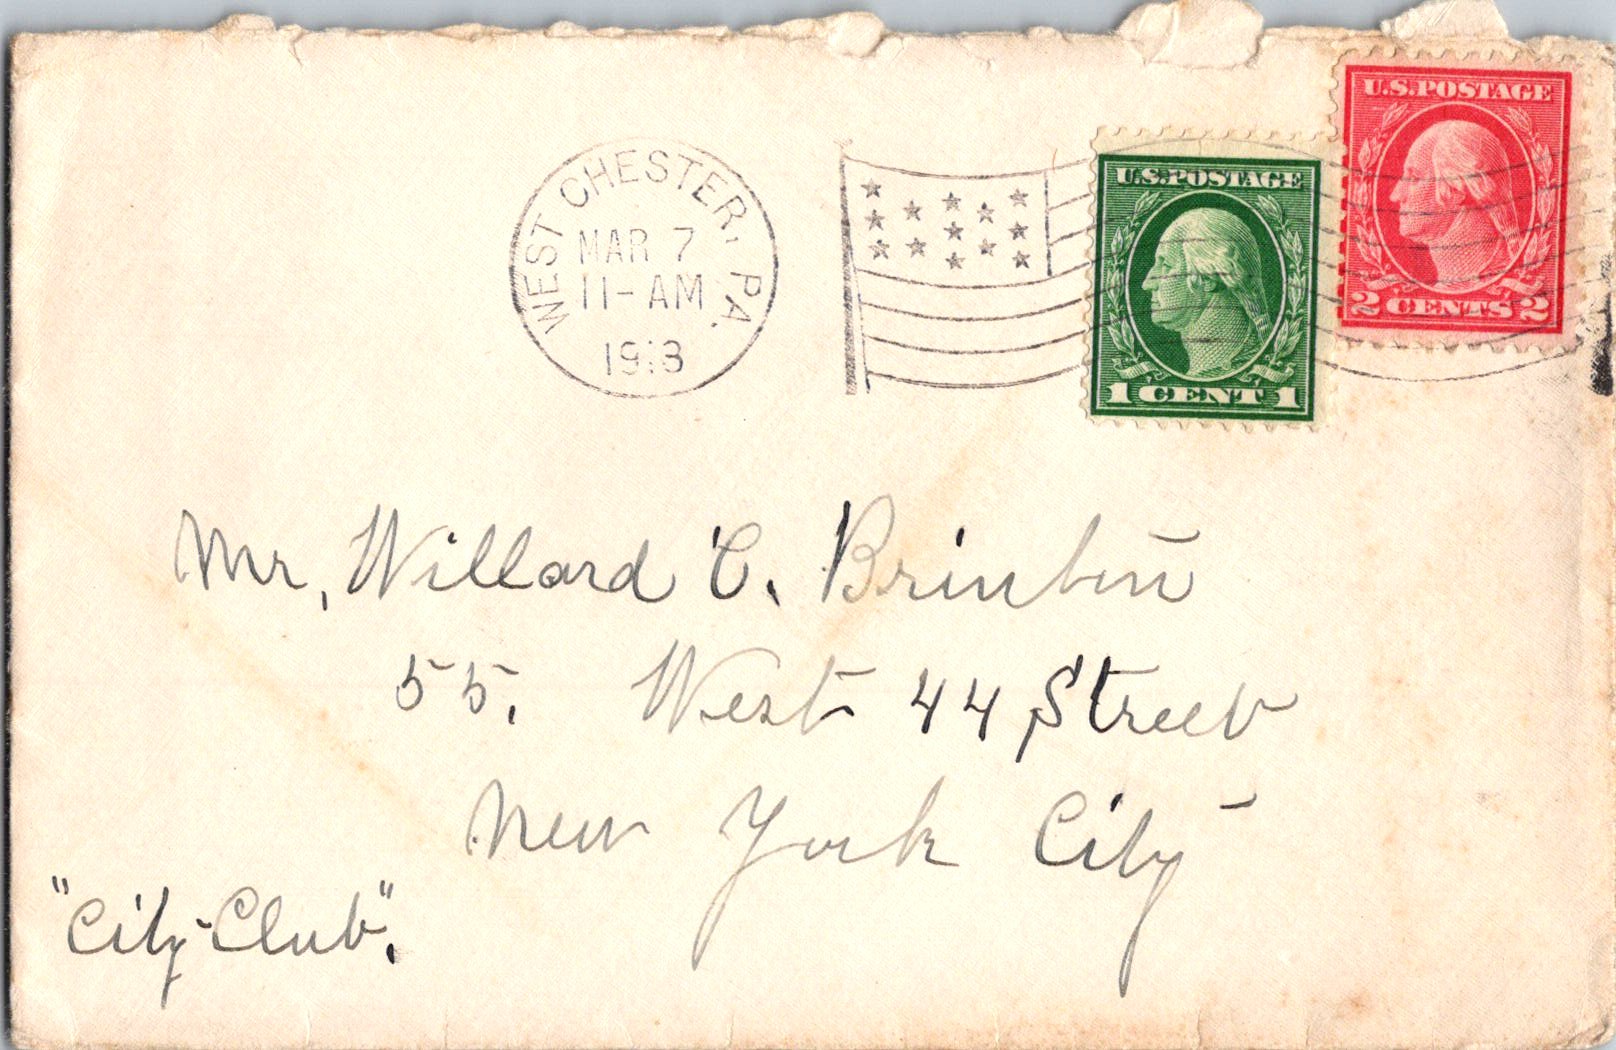 WEST CHESTER, PA.
MAR 7
11-AM
1918
U.S. POSTAGE
1 CENT 1
U.S. POSTAGE
2 CENTS 2
Mr, Willard C. Brinton
55, West 44 Street
New York City
"City Club".